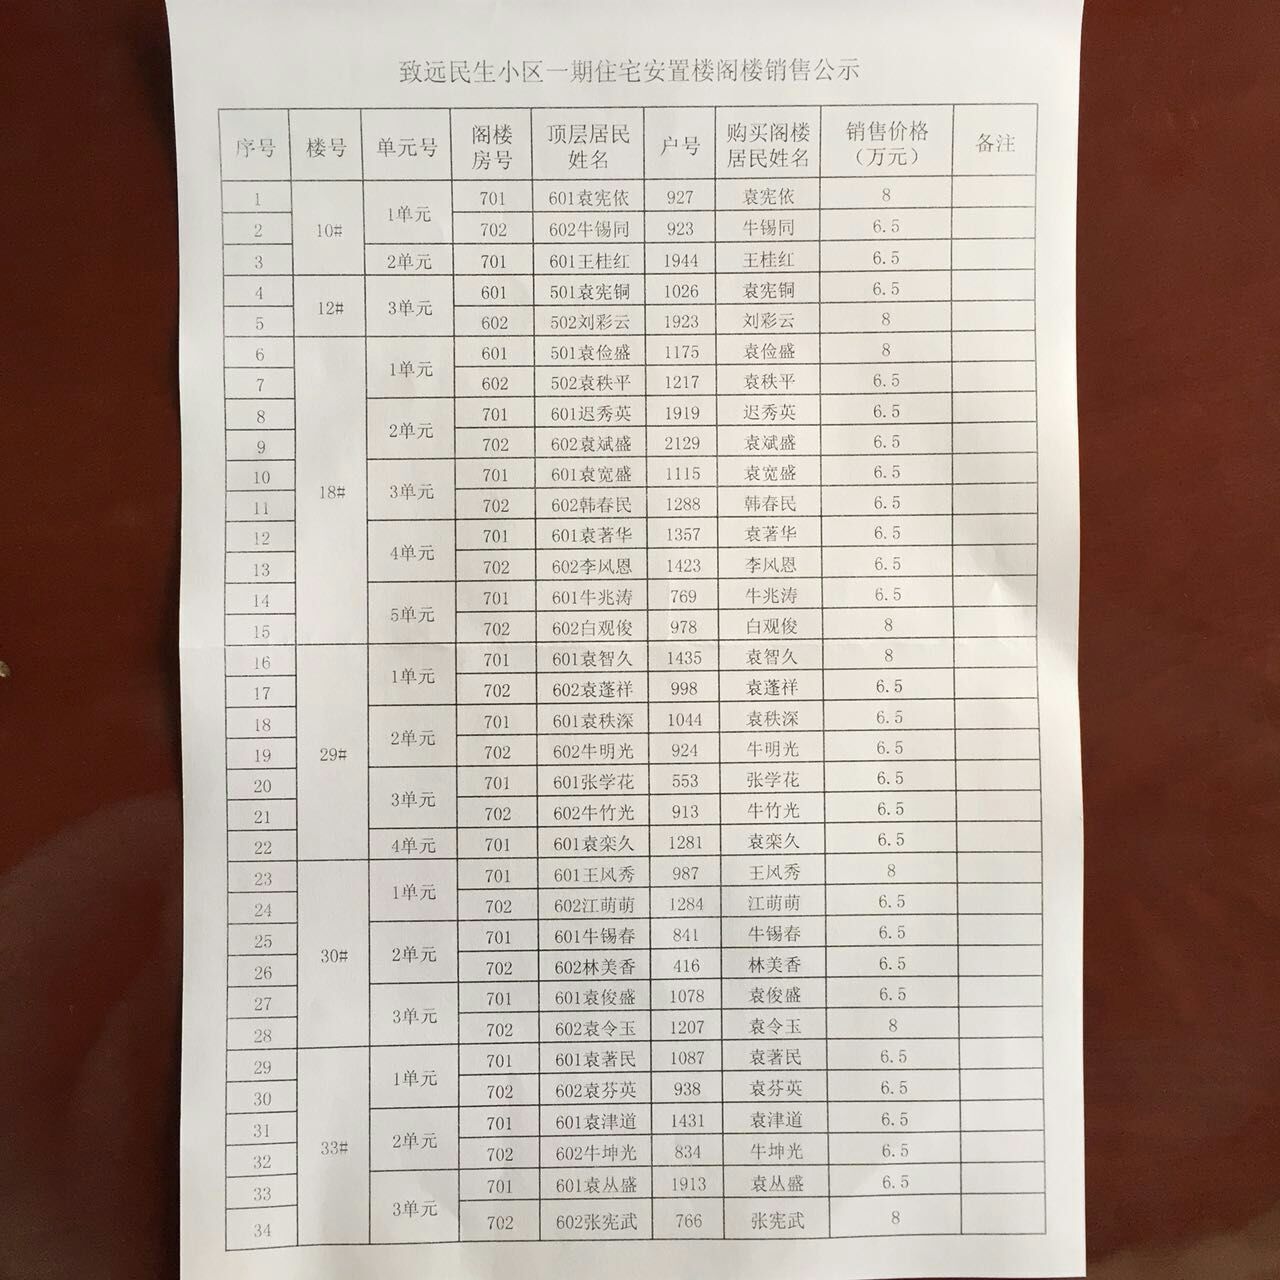 致远民生小区一期住宅安置楼阁楼销售公示
序号 楼号 单元号 阁楼房号 顶层居民姓名 户号 购买阁楼居民姓名 销售价格（万元） 备注
1 10# 1单元 701 601袁宪依 927 袁宪依 8
2 702 602牛锡同 923 牛锡同 6.5
3 2单元 701 601王桂红 1944 王桂红 6.5
4 12# 3单元 601 501袁宪铜 1026 袁宪铜 6.5
5 602 502刘彩云 1923 刘彩云 8
6 18# 1单元 601 501袁俭盛 1175 袁俭盛 8
7 602 502袁秩平 1217 袁秩平 6.5
8 2单元 701 601迟秀英 1919 迟秀英 6.5
9 702 602袁斌盛 2129 袁斌盛 6.5
10 3单元 701 601袁宽盛 1115 袁宽盛 6.5
11 702 602韩春民 1288 韩春民 6.5
12 4单元 701 601袁著华 1357 袁著华 6.5
13 702 602李风恩 1423 李风恩 6.5
14 5单元 701 601牛兆涛 769 牛兆涛 6.5
15 702 602白观俊 978 白观俊 8
16 29# 1单元 701 601袁智久 1435 袁智久 8
17 702 602袁蓬祥 998 袁蓬祥 6.5
18 2单元 701 601袁秩深 1044 袁秩深 6.5
19 702 602牛明光 924 牛明光 6.5
20 3单元 701 601张学花 553 张学花 6.5
21 702 602牛竹光 913 牛竹光 6.5
22 4单元 701 601袁栾久 1281 袁栾久 6.5
23 30# 1单元 701 601王风秀 987 王风秀 8
24 702 602江萌萌 1284 江萌萌 6.5
25 2单元 701 601牛锡春 841 牛锡春 6.5
26 702 602林美香 416 林美香 6.5
27 3单元 701 601袁俊盛 1078 袁俊盛 6.5
28 702 602袁令玉 1207 袁令玉 8
29 33# 1单元 701 601袁著民 1087 袁著民 6.5
30 702 602袁芬英 938 袁芬英 6.5
31 2单元 701 601袁津道 1431 袁津道 6.5
32 702 602牛坤光 834 牛坤光 6.5
33 3单元 701 601袁丛盛 1913 袁丛盛 6.5
34 702 602张宪武 766 张宪武 8